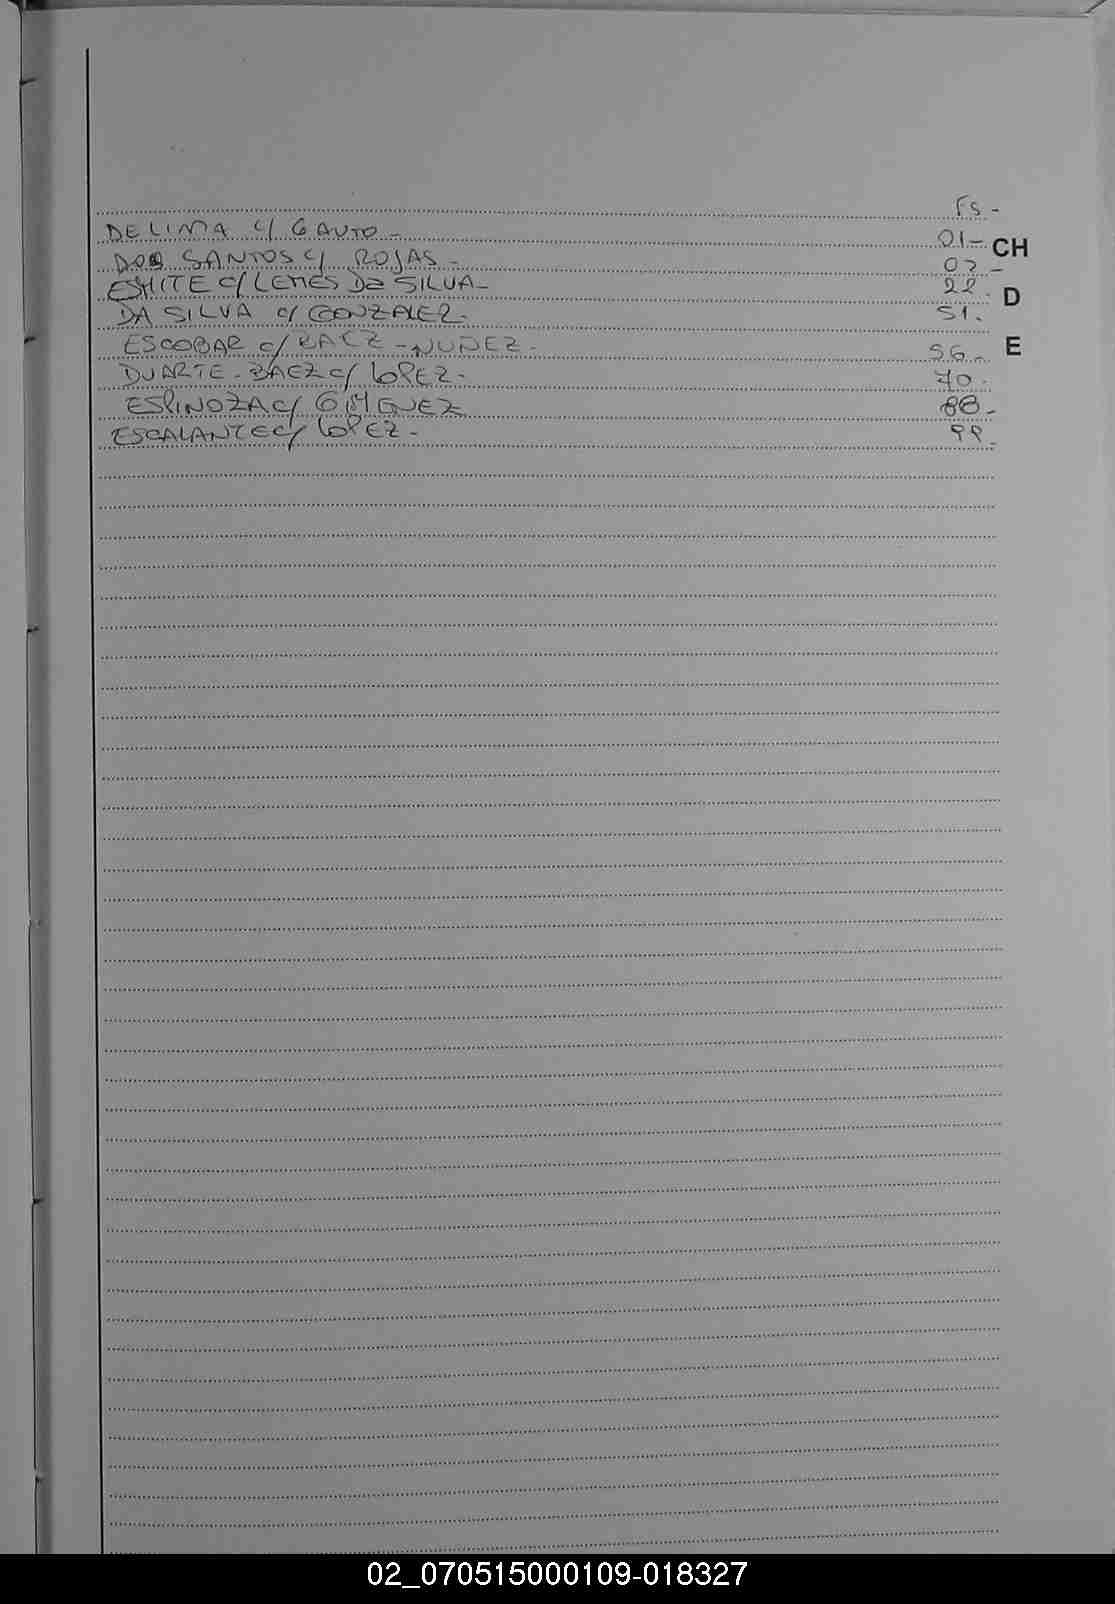 FS-
DE LIMA c/ GAUTO - 01- CH
DOS SANTOS c/ ROJAS - 02 -
ESHITE c/ LEMES Da SILVA - 22. D
DA SILVA c/ GONZALEZ. 51.
ESCOBAR c/ BAEZ - NUÑEZ - 56- E
DUARTE - BAEZ c/ LOPEZ - 70.
ESPINOZA c/ GIMENEZ 88-
ESCALANTE c/ LOPEZ - 99-
02_070515000109-018327